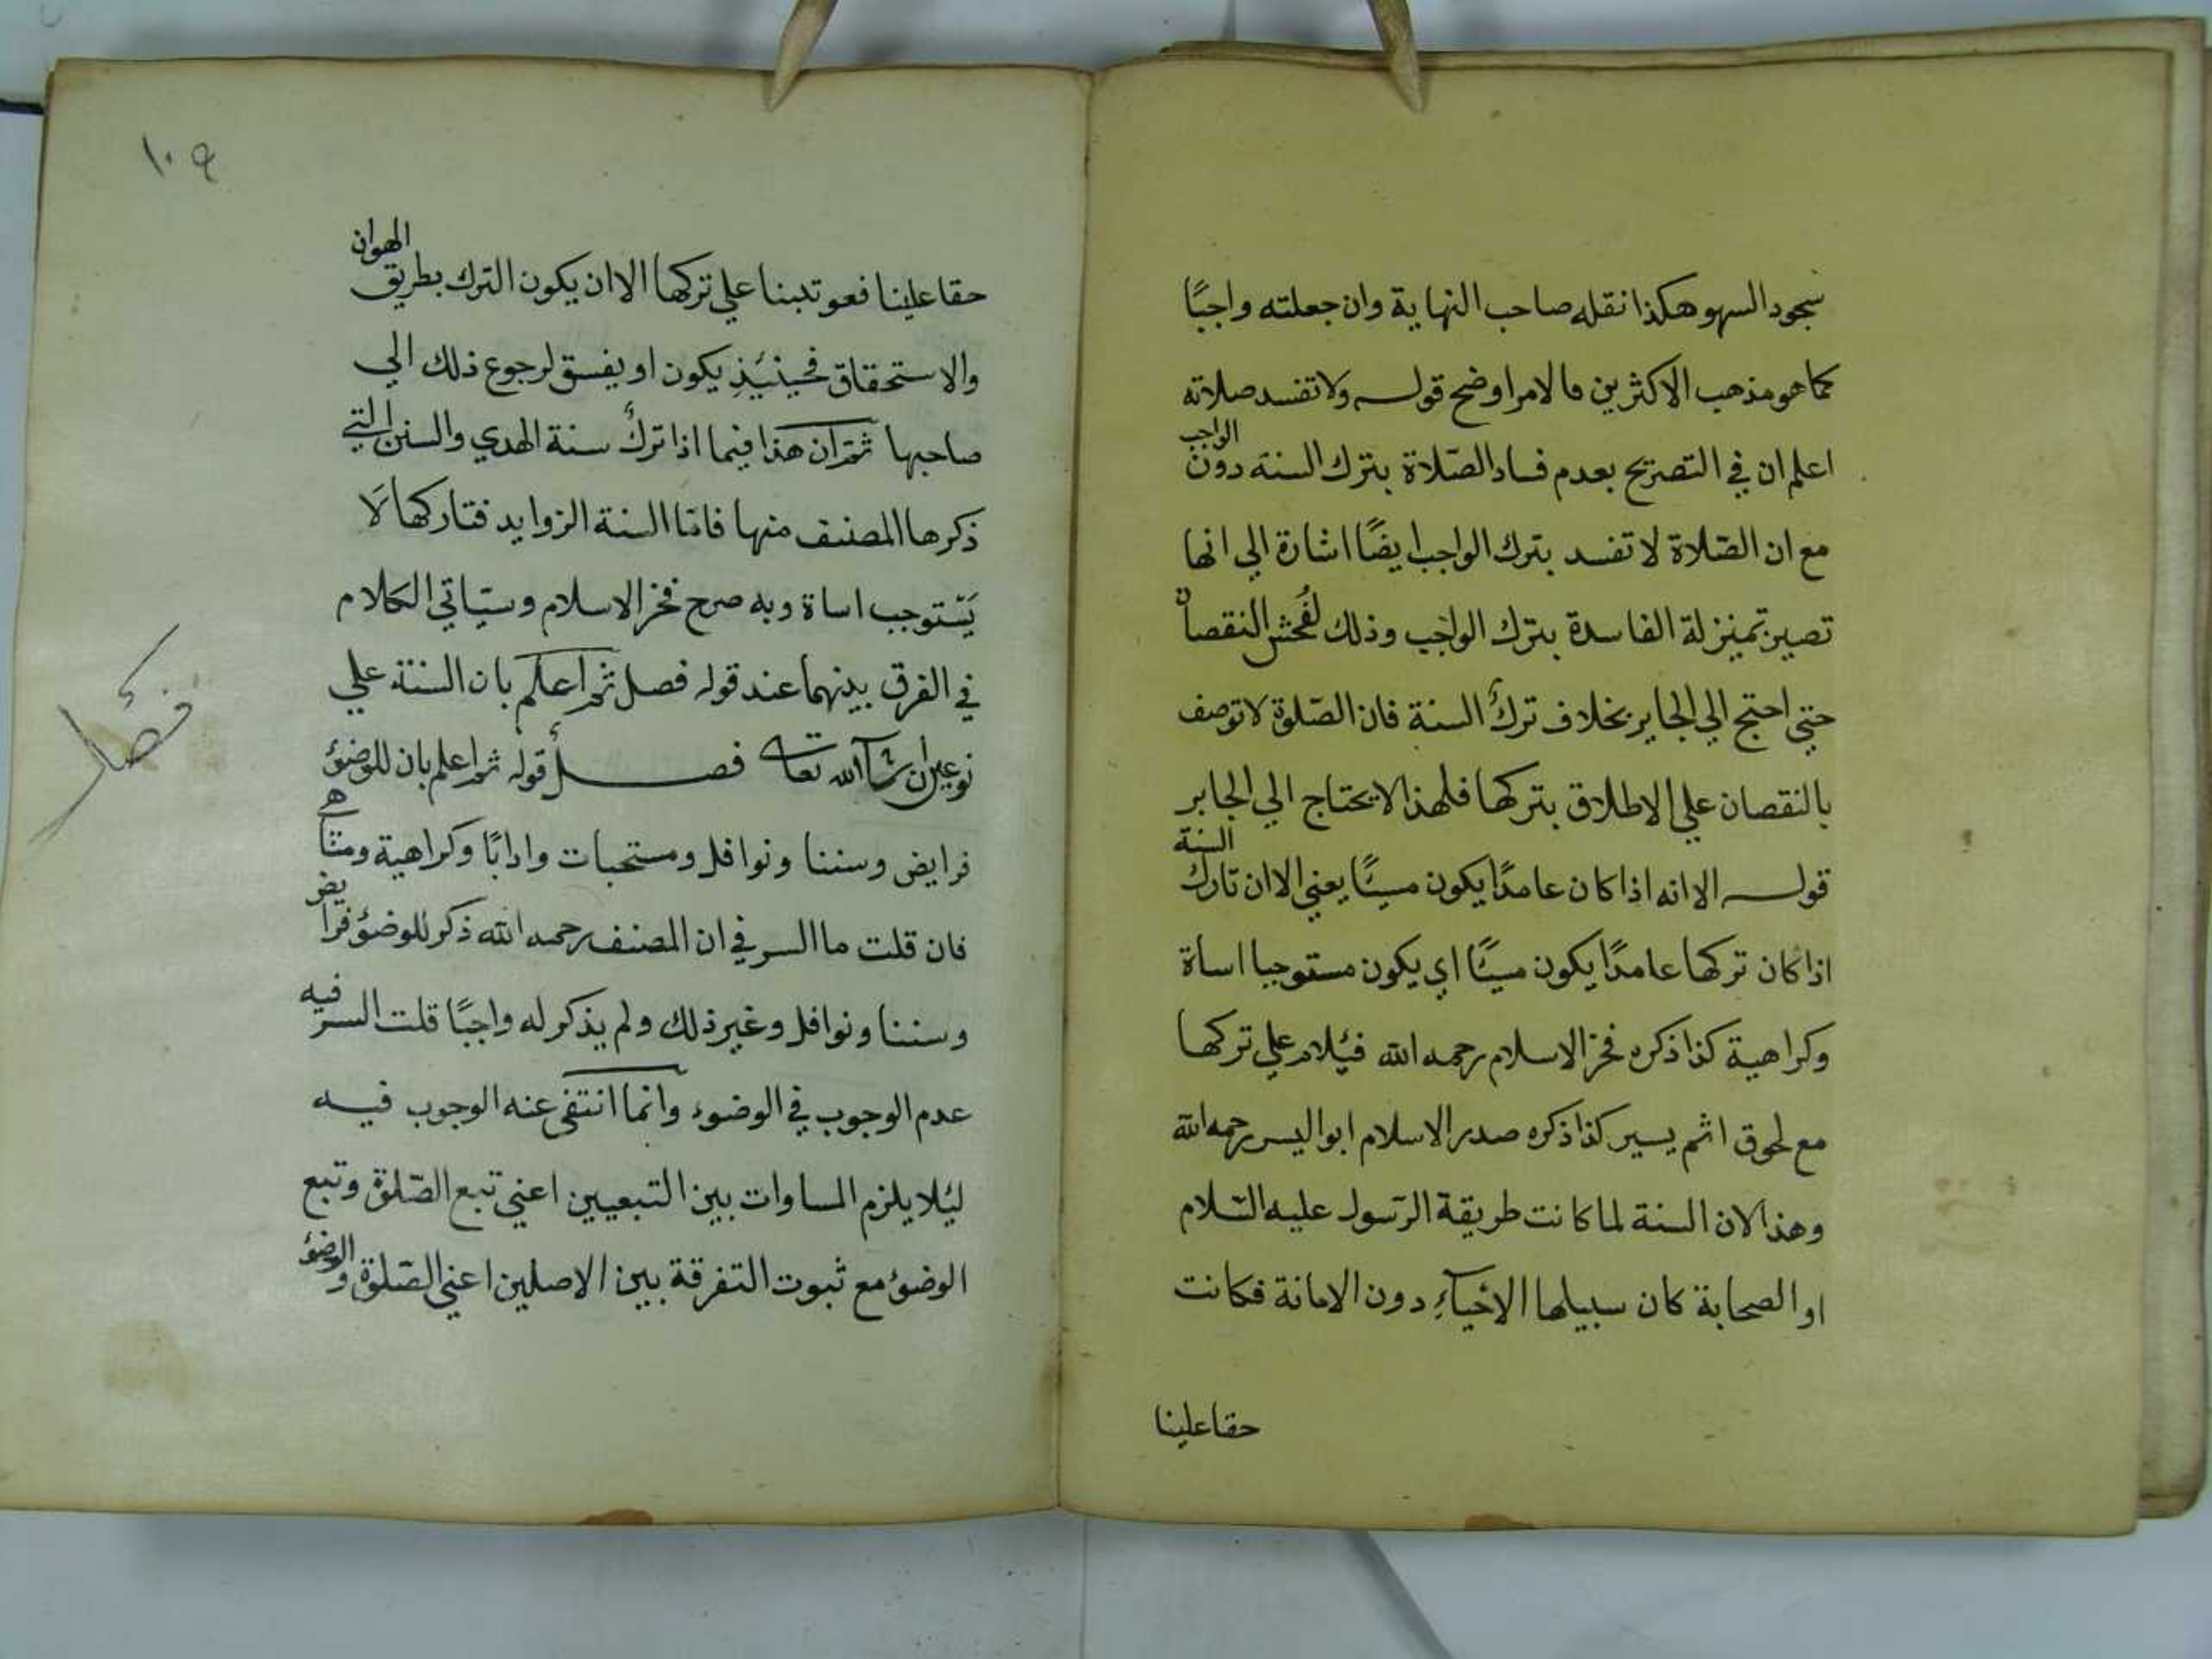 سجود السهو هكذا نقله صاحب النهاية وان جعلته واجبًا
كما هو مذهب الاكثرين فالامر اوضح قوله ولا تفسد صلاته
اعلم ان في التصريح بعدم فساد الصّلاة بترك السنة دون الواجب
مع ان الصّلاة لا تفسد بترك الواجب ايضًا اشارة الي انها
تصير بمنزلة الفاسدة بترك الواجب وذلك لفُحش النقصان
حتي احتج الي الجابر بخلاف ترك السنة فان الصّلوة لا توصف
بالنقصان علي الاطلاق بتركها فلهذا لا يحتاج الي الجابر
قوله الا انه اذا كان عامدًا يكون مسئًا يعني الا ان تارك السنة
اذا كان تركها عامدًا يكون مسئًا اي يكون مستوجبا اساة
وكراهية كذا ذكره فخر الاسلام رحمه الله فيُلام علي تركها
مع لحوق اثم يسير كذا ذكره صدر الاسلام ابو اليسر رحمه الله
وهذا لان السنة لما كانت طريقة الرّسول عليه السّلام
او الصحابة كان سبيلها الاحيآءِ دون الاماتة فكانت
حقا علينا
١٠٩
حقا علينا فعوتبنا علي تركها الا ان يكون الترك بطريق الهوان
والاستحقاق فحينئِذٍ يكون او يفسق لرجوع ذلك الي
صاحبها ثم ان هذا فيما اذا ترك سنة الهدي والسنن التي
ذكرها المصنف منها فامّا السنة الزوايد فتاركها لا
يَسْتوجب اساة وبه صرح فخر الاسلام وسيَاتي الكلام
في الفرق بينهما عند قوله فصل ثم اعلم بان السنة علي
نوعين ان شآ الله تعا فصل قوله ثم اعلم بان للوضؤُ
فرايض وسننا ونوافل ومستحبات وادابًا وكراهية ومناهي
فان قلت ما السر في ان المصنف رحمه الله ذكر للوضؤُ فرايض
وسننا ونوافل وغير ذلك ولم يذكر له واجبًا قلت السر فيه
عدم الوجوب في الوضوء وانما انتفي عنه الوجوب فيه
ليُلا يلزم المساوات بين التبعيين اعني تبع الصّلوة وتبع
الوضؤُ مع ثبوت التفرقة بين الاصلين اعني الصّلوة والوضؤُ
فصل